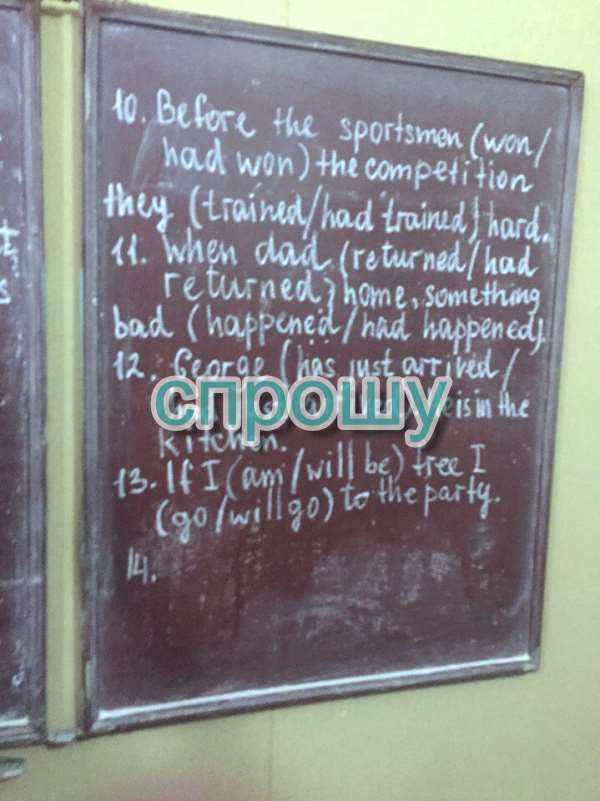 10. Before the sportsmen (won/
had won) the competition
they (trained/had trained) hard.
11. When dad (returned/had
returned) home, something
bad (happened/had happened).
12. George (has just arrived/
спрошу
is in the
kitchen.
13. If I (am/will be) free I
(go/will go) to the party.
14.